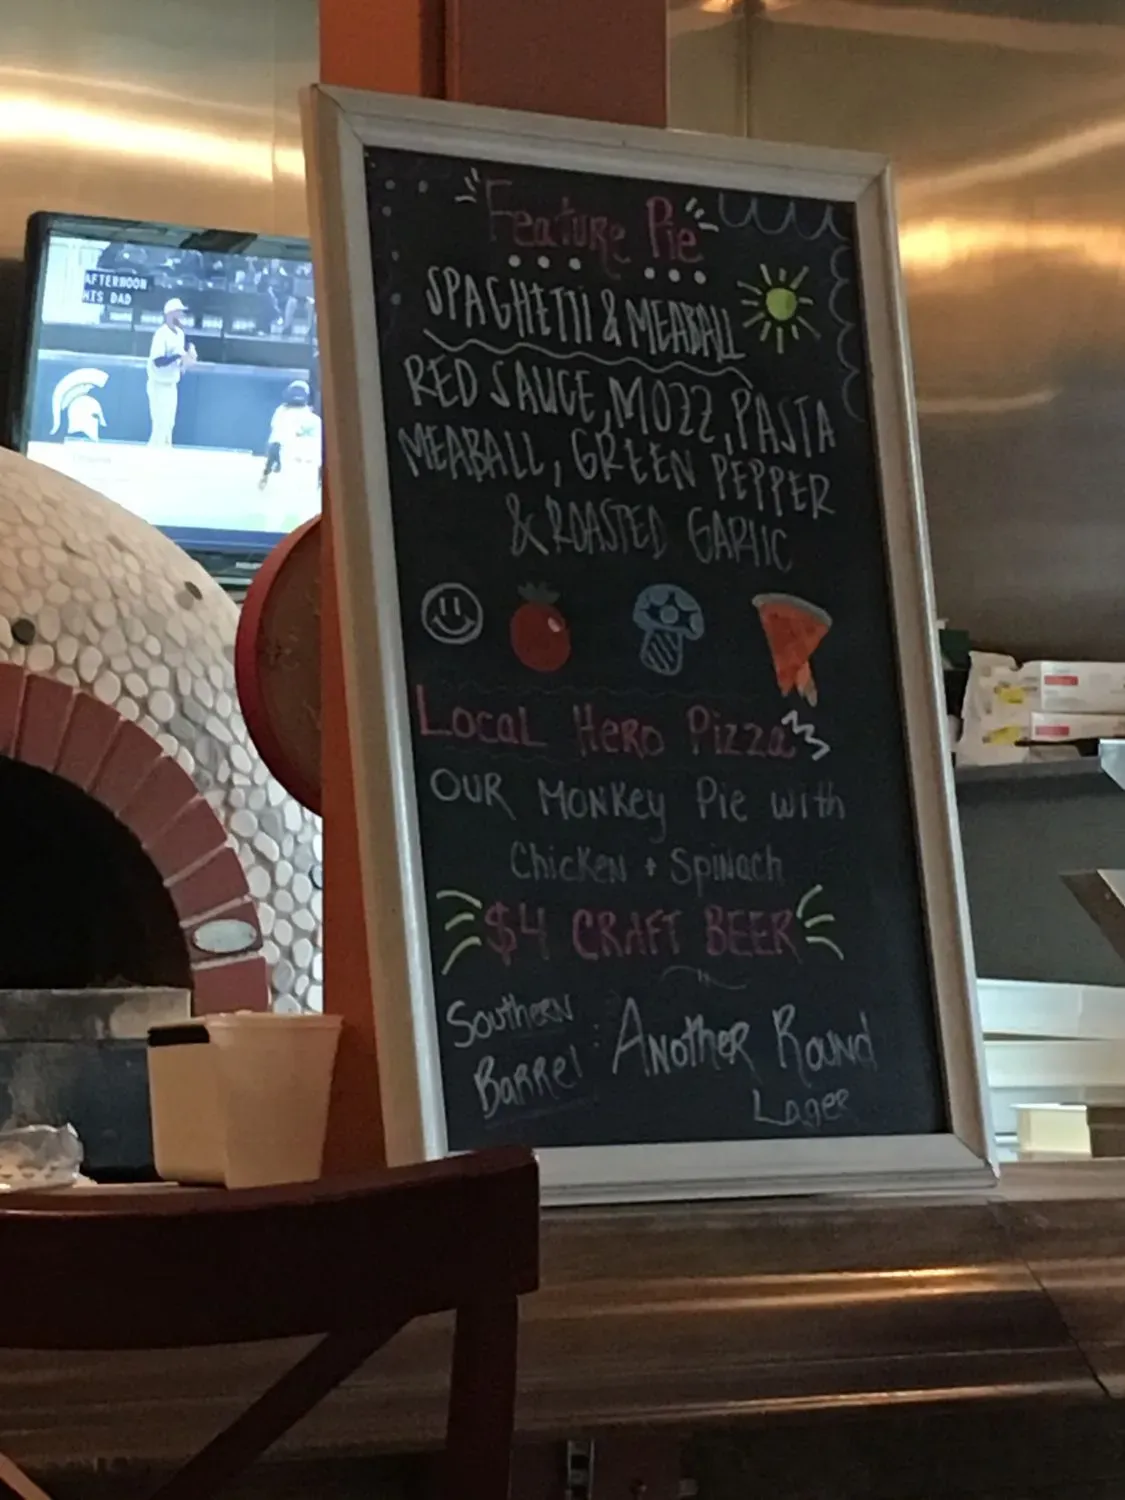 AFTERNOON
HIS DAD
Feature Pie
SPAGHETTI & MEABALL
RED SAUCE, MOZZ, PASTA
MEABALL, GREEN PEPPER
& ROASTED GARLIC
Local Hero Pizza
OUR Monkey Pie with
Chicken + Spinach
$4 CRAFT BEER
Southern
Barrel : Another Round
Lager